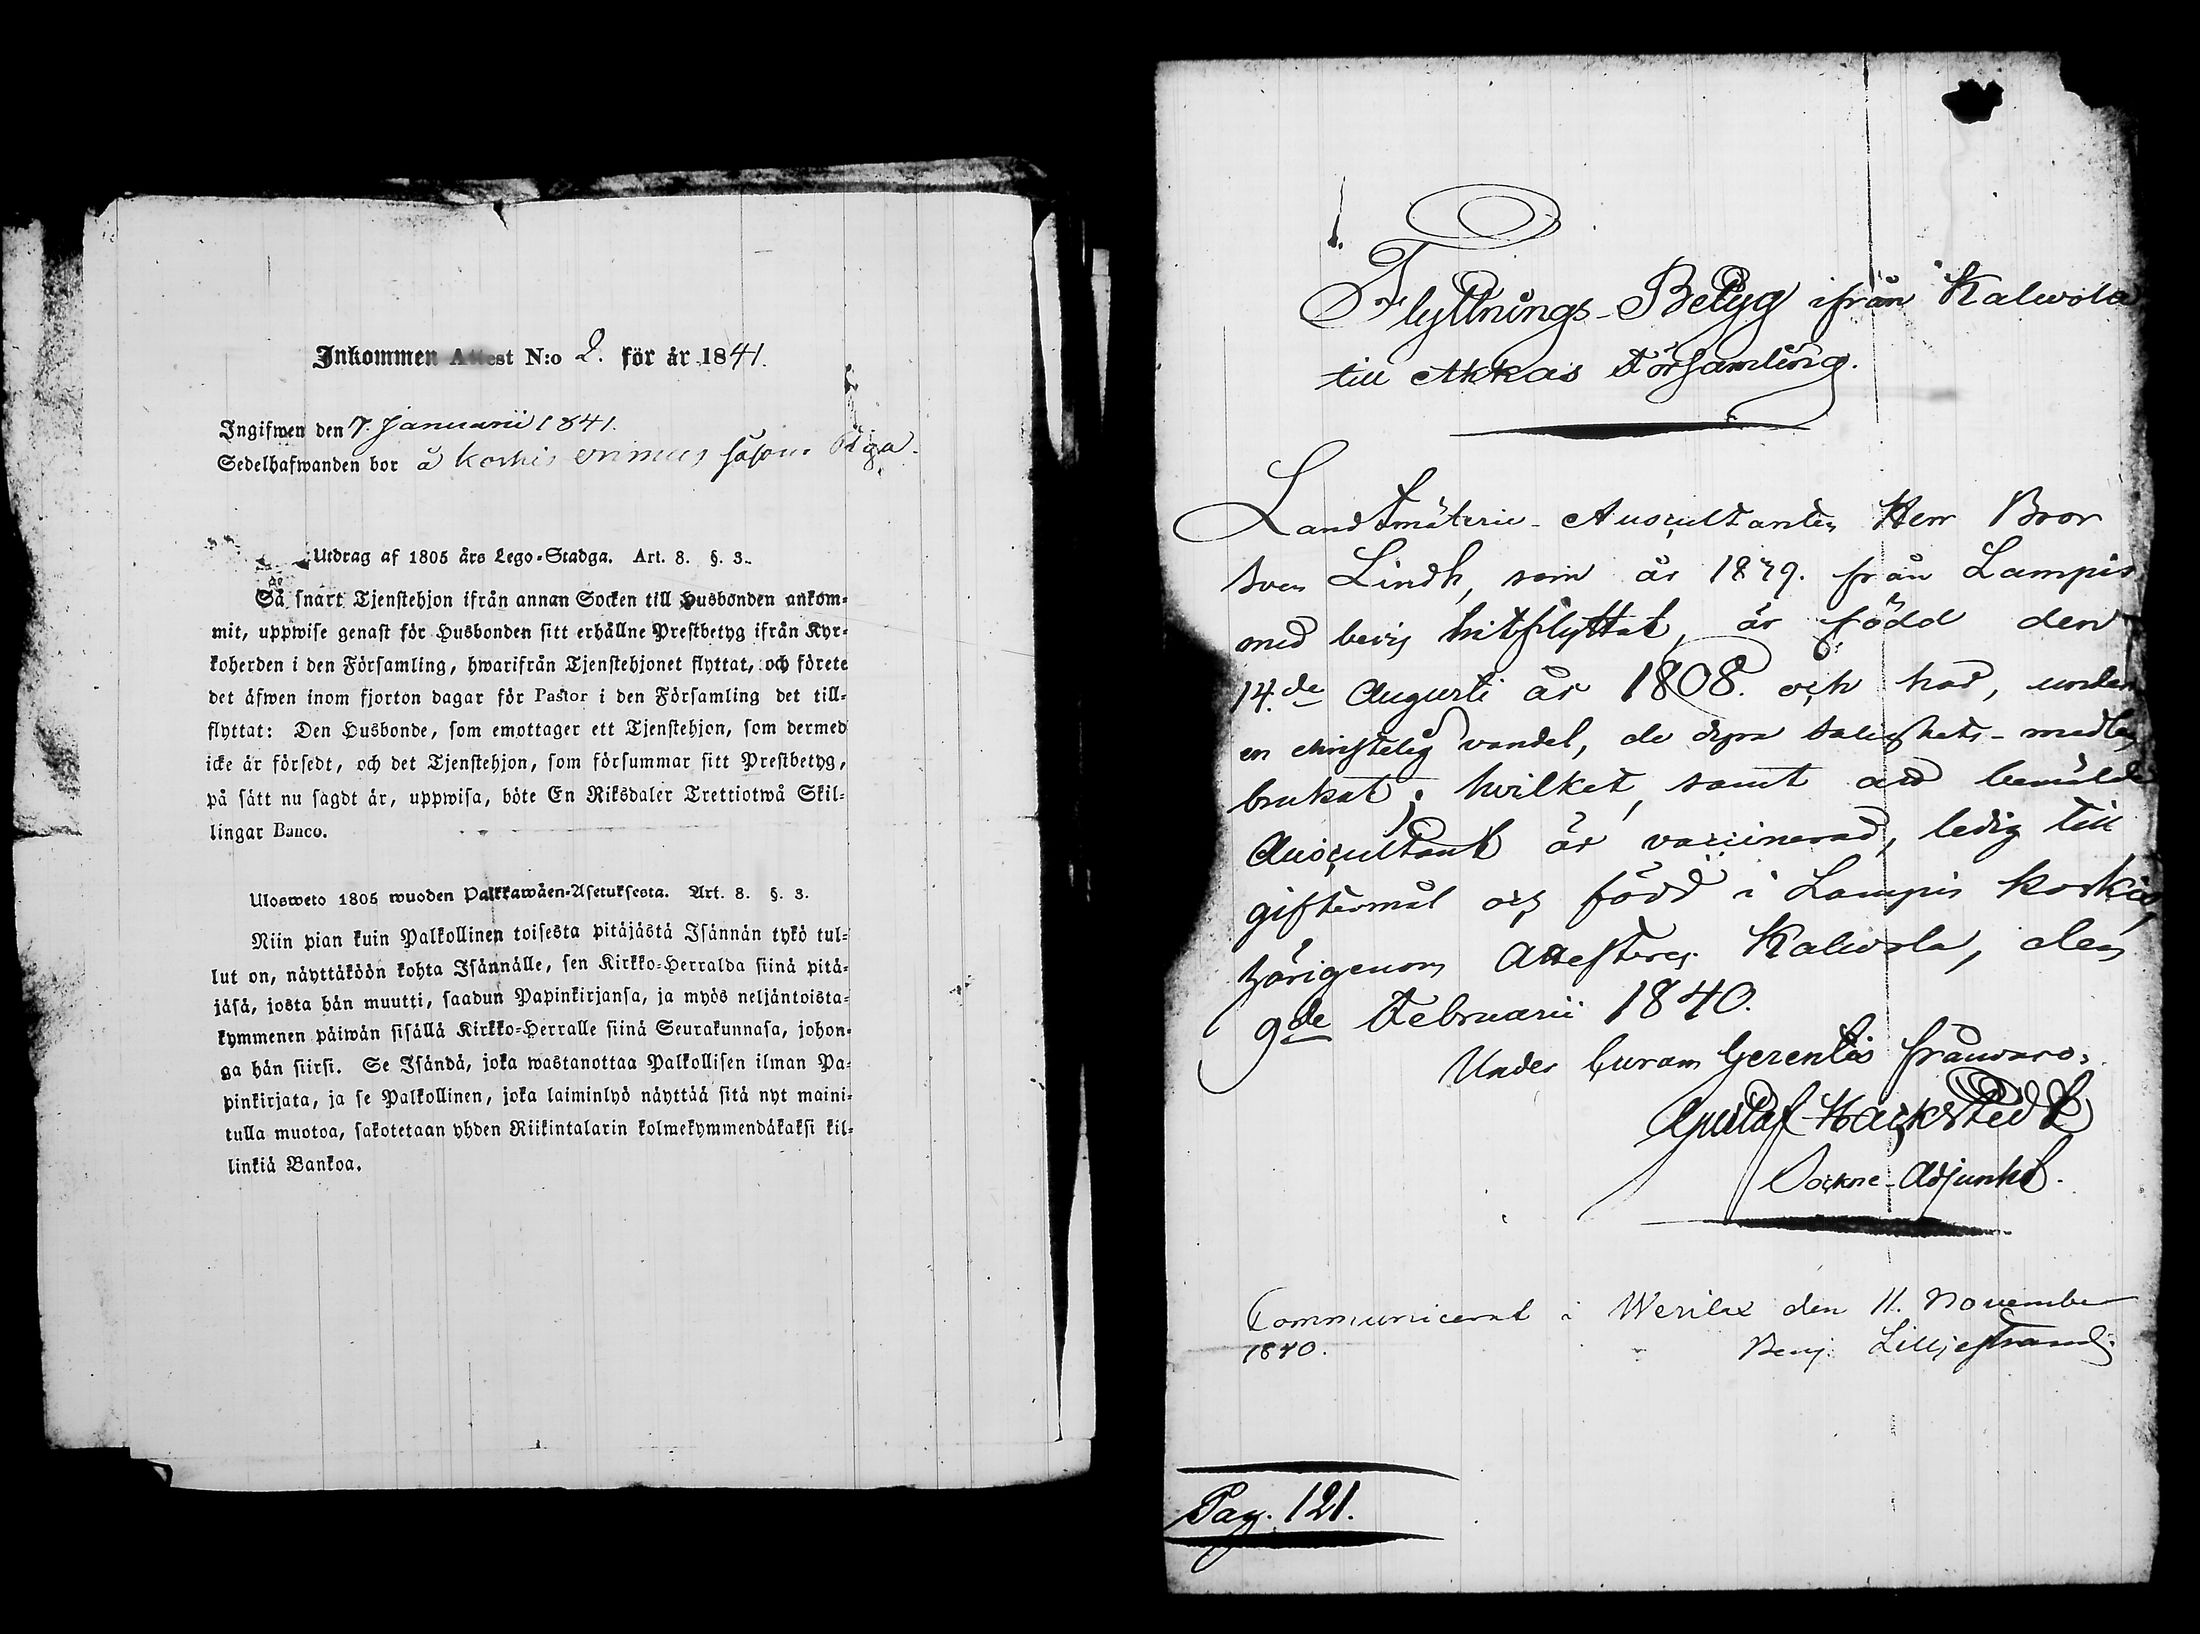 Inkommen Attest N:o 2. för år 1841.
Ingifwen den 7. Januarii 1841.
Sedelhafwanden bor å såsom Piga.
Utdrag af 1805 års Lego-Stadga. Art. 8. §. 3.
Så snart Tjenstehjon ifrån annan Socken till Husbonden ankom-
mit, uppwise genast för Husbonden sitt erhållne Prestbetyg ifrån Kyr-
koherden i den Församling, hwarifrån Tjenstehjonet flyttat, och förete
det äfwen inom fjorton dagar för Pastor i den Församling det till-
flyttat: Den Husbonde, som emottager ett Tjenstehjon, som dermed
icke är försedt, och det Tjenstehjon, som försummar sitt Prestbetyg,
på sätt nu sagdt är, uppwisa, böte En Riksdaler Trettiotwå Skil-
lingar Banco.
Ulosweto 1805 wuoden Palkkawäen-Asetuksesta. Art. 8. §. 3.
Niin pian kuin Palkollinen toisesta pitäjästä Isännän tykö tul-
lut on, näyttäköön kohta Isännälle, sen Kirkko-Herralda siinä pitä-
jäsä, josta hän muutti, saadun Papinkirjansa, ja myös neljäntoista-
kymmenen päiwän sisällä Kirkko-Herralle siinä Seurakunnasa, johon-
ga hän siirsi. Se Isändä, joka wastanottaa Palkollisen ilman Pa-
pinkirjata, ja se Palkollinen, joka laiminlyö näyttää sitä nyt maini-
tulla muotoa, sakotetaan yhden Riikintalarin kolmekymmendäkaksi kil-
linkiä Bankoa.
1.
Flyttnings-Betyg ifrån Kalwola
till Akkas Församling.
Landtmäterie-Auscultanten Herr Bror
Sven Lindh, som år 1839. från Lampis
med bevis hitflyttat, är född den
14.de Augusti år 1808. och har, under
en christelig vandel, de dyra salighets-medlen
brukat; hvilket, samt att bemälde
Auscultant är vaccinerad, ledig till
giftermål och född i Lampis Koskis,
härigenom attesteras. Kalwola, den
9de Februarii 1840.
Under Curam Gerentis frånvaro,
Gustaf Hackstedt
Sockne-Adjunkt.
Communicerat i Wesilax den 11. November
1840. Benj. Lilljestrand.
Pag. 121.